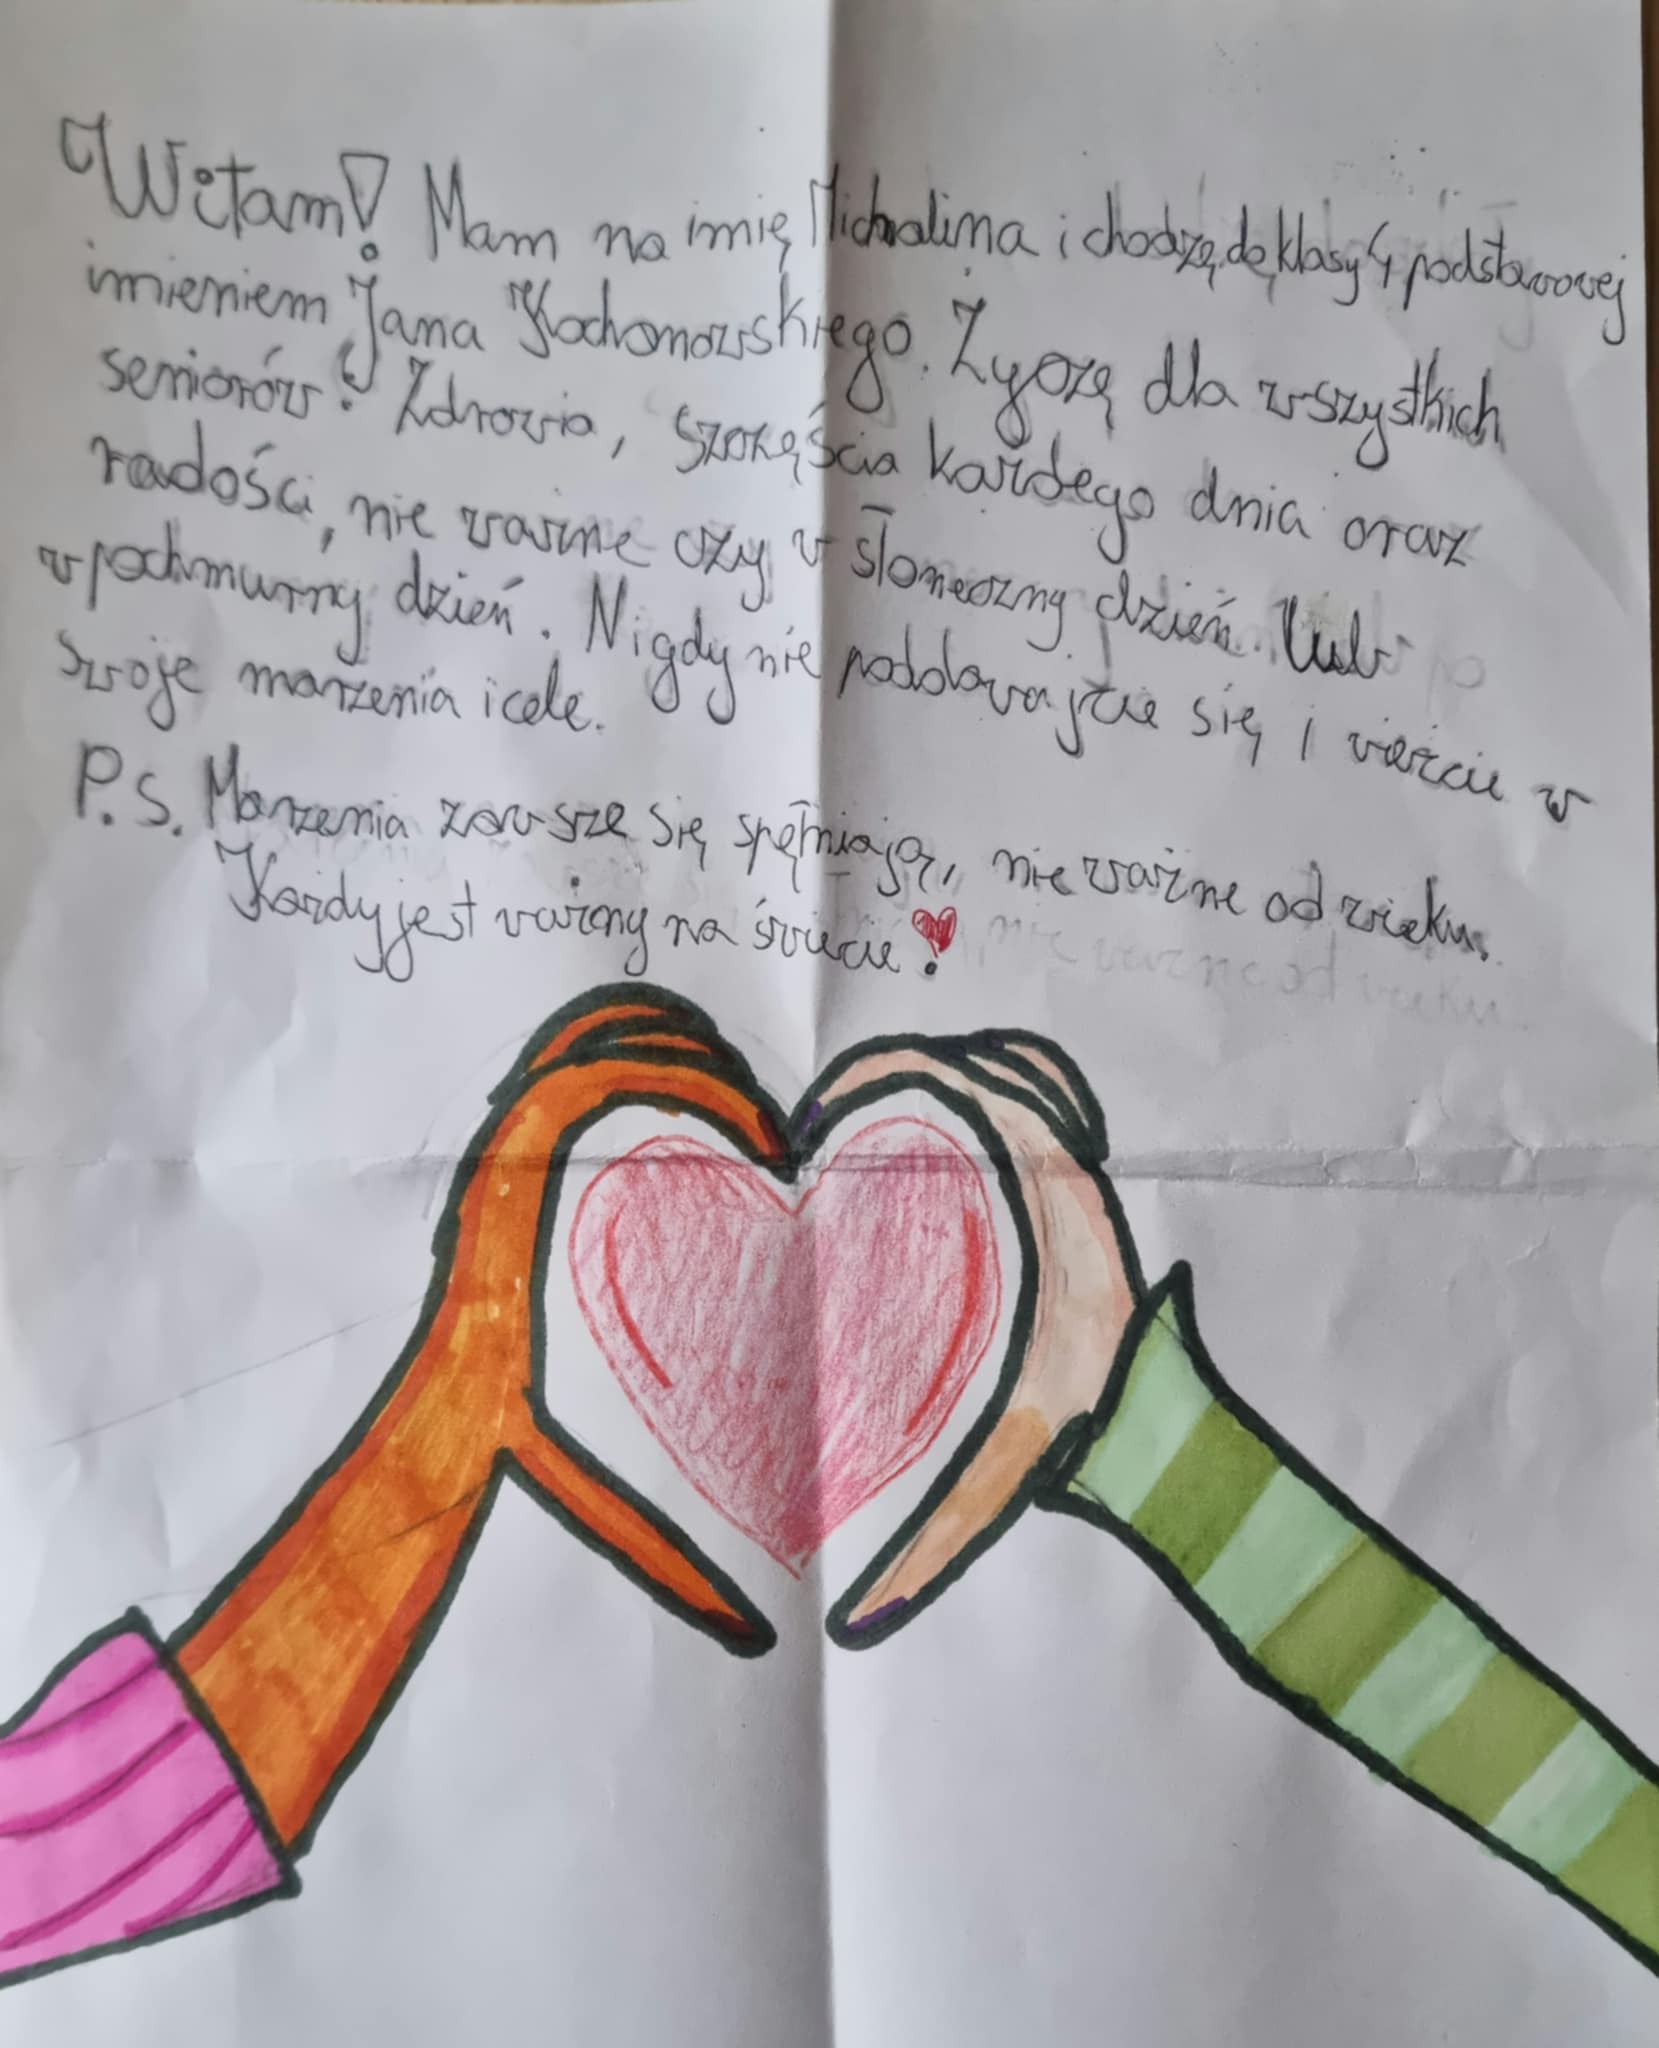 Witam! Mam na imię Michalina i chodzę do klasy 4 podstawowej
imieniem Jana Kochanowskiego. Życzę dla wszystkich
seniorów! Zdrowia, szczęścia każdego dnia oraz
radości, nie ważne czy w słoneczny dzień. lub
w pochmurny dzień. Nigdy nie poddawajcie się i wierzcie w
swoje marzenia i cele.
P.S. Marzenia zawsze się spęłniają, nie ważne od wieku.
Każdy jest ważny na świecie!